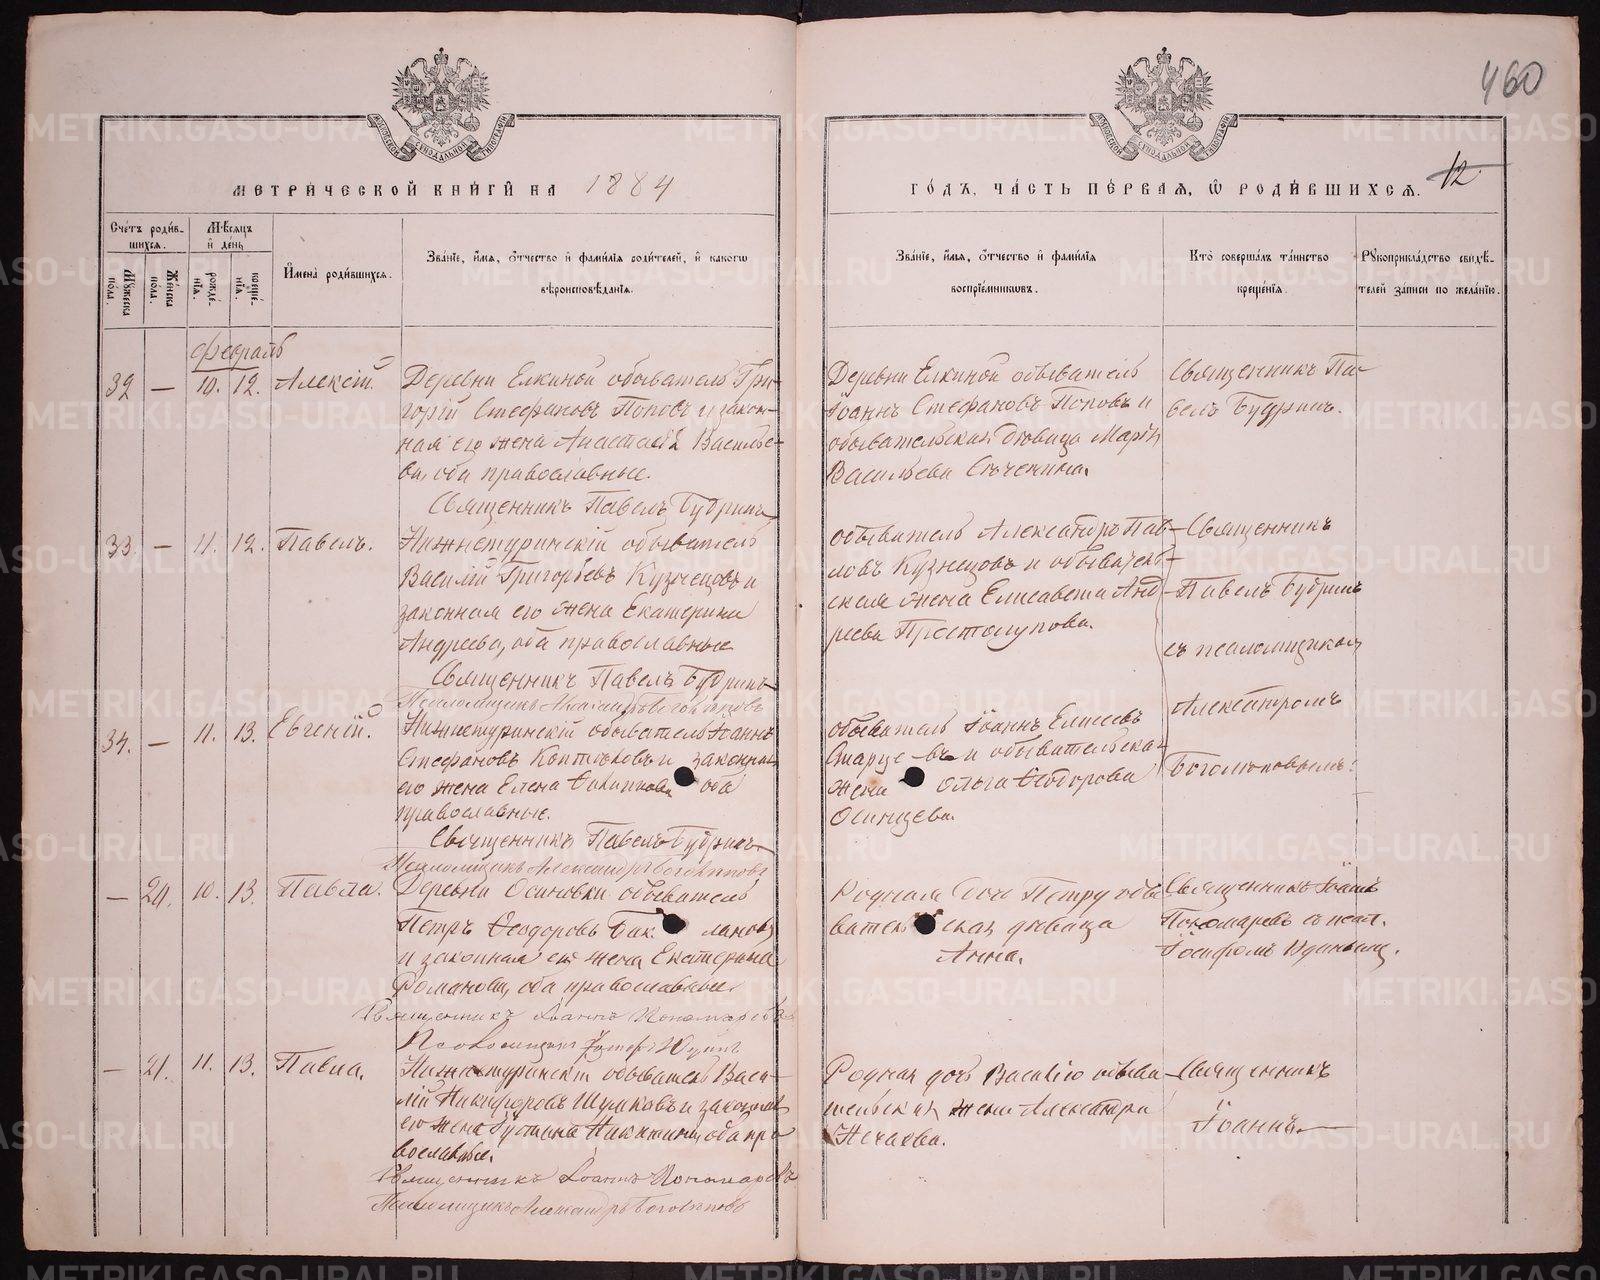 460
12
МОСКОВСКОЙ СѴНОДАЛЬНОЙ ТИПОГРАФІИ
МОСКОВСКОЙ СѴНОДАЛЬНОЙ ТИПОГРАФІИ
МЕТРИ́ЧЕСКОЙ КНИ́ГИ НА 1884
ГО́ДЪ, ЧА́СТЬ ПЕ́РВАЯ, Ѡ҆ РОДИ́ВШИХСЯ.
Сче́тъ роди́в-
шихся.
Мѣ́сяцъ
и҆ де́нь
Мꙋ́жеска по́ла.
Же́нска по́ла.
рожде́-
нїя.
креще́-
нїя.
И҆мена̀ роди́вшихся.
Зва́нїе, и҆́мя, ѻ҆́тчество и҆ фами́лїя роди́телей, и҆ како́гѡ
вѣроисповѣ́данїя.
Зва́нїе, и҆́мя, ѻ҆́тчество и҆ фами́лїя
воспрїе́мникѡвъ.
Кто̀ соверша́лъ та́инство
креще́нїя.
Рꙋкоприкла́дство свидѣ́-
телей за́писи по жела́нїю.
Февраль
32 — 10. 12. Алексій.
Деревни Елкиной обыватель Гри-
горій Стефановъ Поповъ и закон-
ная его жена Анастасія Василье-
ва, оба православные.
Священникъ Павелъ Будринъ
Деревни Елкиной обыватель
Іоаннъ Стефановъ Поповъ и
обывательская дѣвица Марія
Васильева
Священникъ Па-
велъ Будринъ.
33. — 11. 12. Павелъ.
Нижнетуринскій обыватель
Василій Григорьевъ Кузнецовъ и
законная его жена Екатерина
Андреева, оба православные
Священникъ Павелъ Будринъ
Псаломщикъ Александръ Боголюбовъ
обыватель Александръ Пав-
ловъ Кузнецовъ и обыватель-
ская жена Елисавета Анд-
реева Простолупова.
Священникъ
Павелъ Будринъ
съ псаломщикомъ
Александромъ
34. — 11. 13. Евгеній.
Нижнетуринскій обыватель Іоаннъ
Стефановъ и законная
его жена Елена Филиппова оба
православные.
Священникъ Павелъ Будринъ
Псаломщикъ Александръ
обыватель Іоаннъ Елисеевъ
Старцевъ и обывательская
жена Ольга Ѳеодорова
Осинцева.
— 20. 10. 13. Павла.
Деревни Осиновки обыватель
Петръ Ѳеодоровъ
и законная его жена Екатерина
Романова, оба православные.
Священникъ Іоаннъ Пономаревъ
Псаломщикъ
Родная дочь Петру обы-
вательская дѣвица
Анна.
Священникъ Іоаннъ
Пономаревъ съ псал.
Іосифомъ
— 21. 11. 13. Павла.
Нижнетуринскій обыватель Васи-
лій Никифоровъ Шумковъ и законная
его жена Іустина Никитина, оба пра-
вославные.
Священникъ Іоаннъ Пономаревъ
Псаломщикъ Александръ
Родная дочь Василію обыва-
тельская жена Александра
Нечаева.
Священникъ
Іоаннъ
METRIKI.GASO-URAL.RU